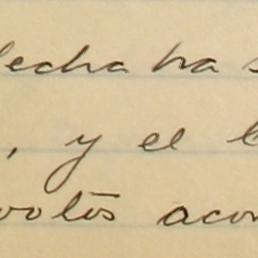 fecha ha
, y el
votos acor